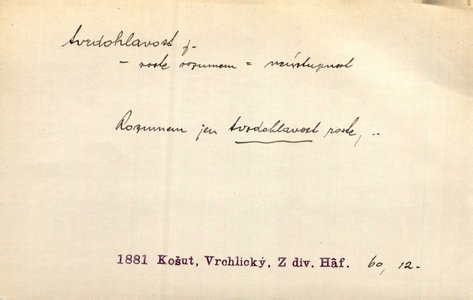 tvrdohlavost f.
– roste rozumem = neústupnost
Rozumem jen tvrdohlavost roste, ..
1881 Košut, Vrchlický, Z div. Háf. 60, 12.